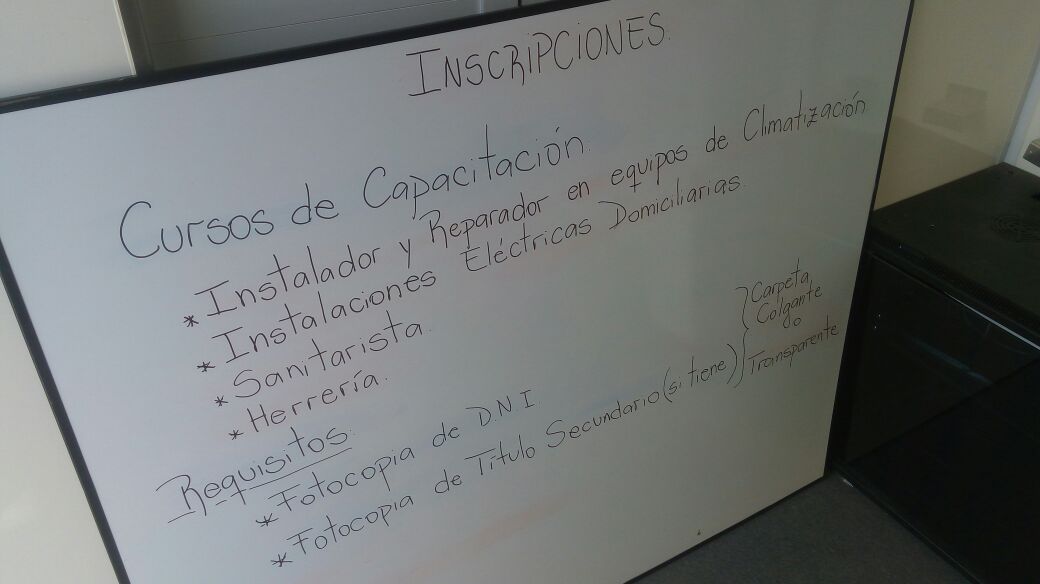 INSCRIPCIONES.
Cursos de Capacitación.
* Instalador y Reparador en equipos de Climatización
* Instalaciones Eléctricas Domiciliarias.
* Sanitarista.
* Herrería.
Requisitos:
* Fotocopia de D.N.I
* Fotocopia de Título Secundario (si tiene)
} Carpeta
Colgante
o
Transparente